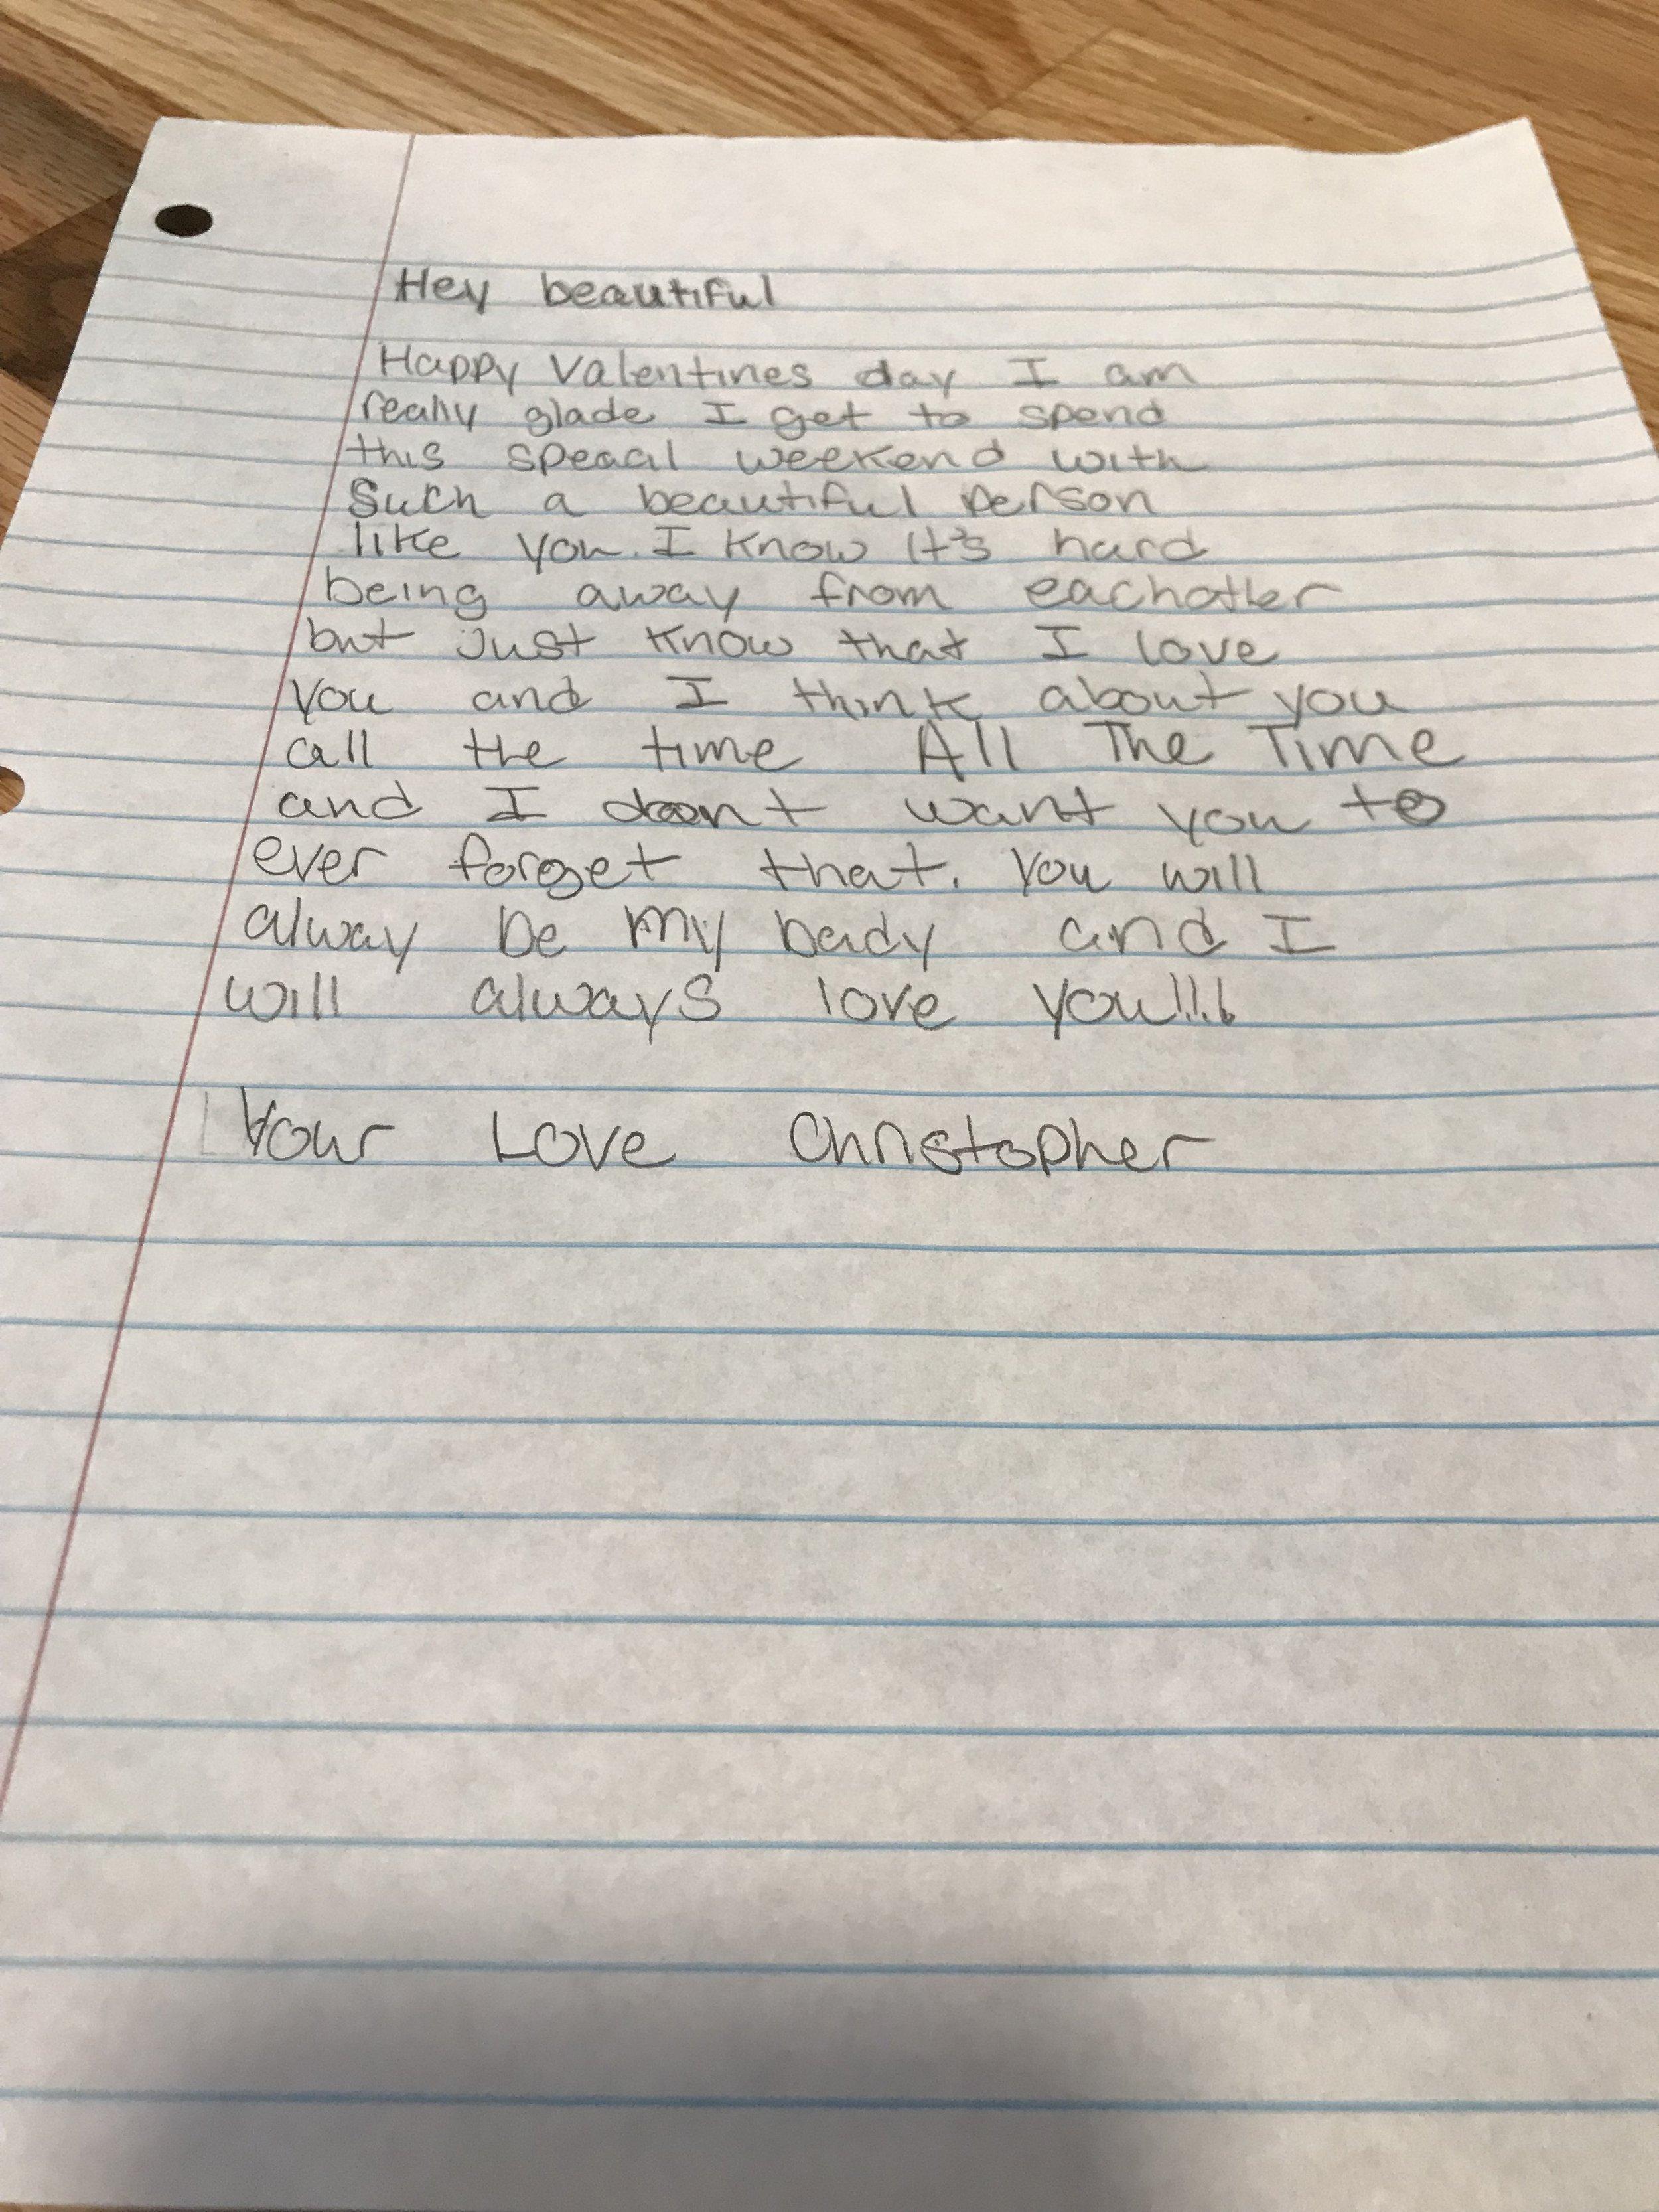 Hey beautiful
Happy Valentines day I am
really glade I get to spend
this speacil weekend with
Such a beautiful person
like you. I know it's hard
being away from eachother
but Just know that I love
you and I think about you
all the time All The Time
and I don't want you to
ever forget that. You will
alway be my bady and I
will always love you!!!!
Your Love Christopher